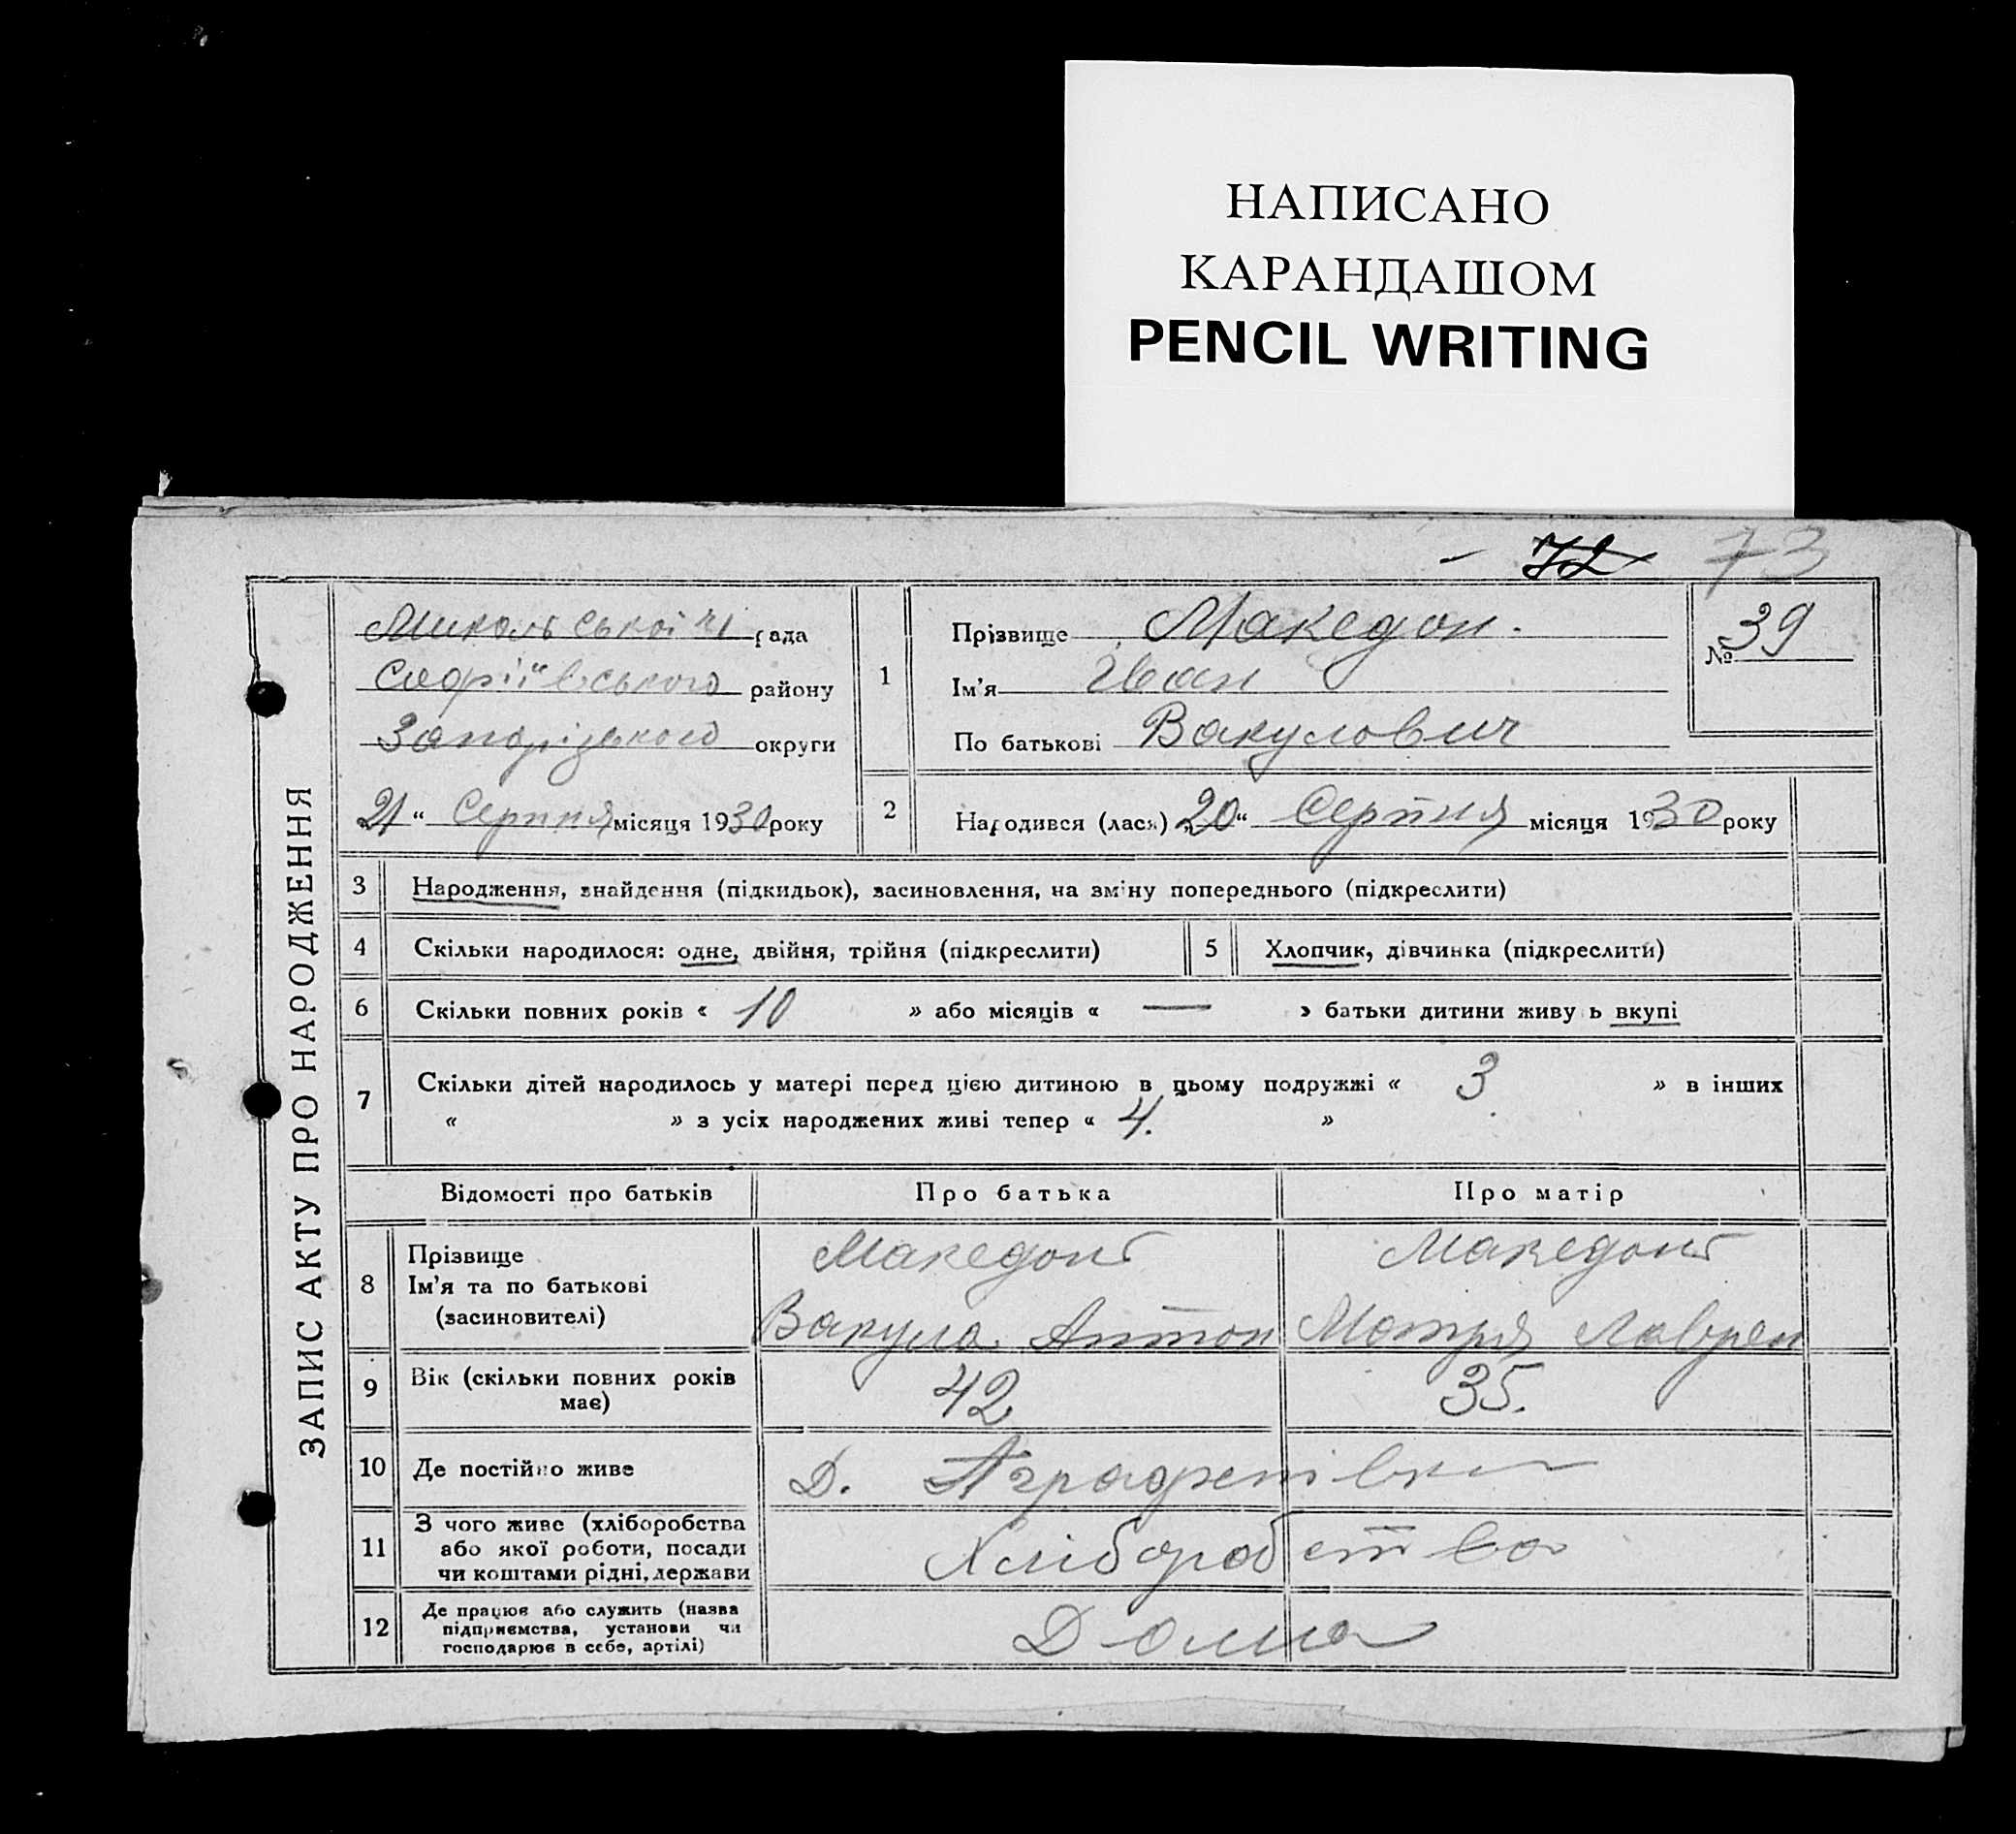 НАПИСАНО
КАРАНДАШОМ
PENCIL WRITING
- 72 73
ЗАПИС АКТУ ПРО НАРОДЖЕННЯ
рада
Софіївського району
Запорізького округи
21 " Серпня місяця 1930 року
1
Прізвище Македон.
Ім'я Іван
По батькові Вакулович
№ 39
2 Народився (лася) 20 " Серпня місяця 1930 року
3 Народження, знайдення (підкидьок), засиновлення, на зміну попереднього (підкреслити)
4 Скільки народилося: одне, двійня, трійня (підкреслити) 5 Хлопчик, дівчинка (підкреслити)
6 Скільки повних років « 10 » або місяців « — » батьки дитини живу ь вкупі
7 Скільки дітей народилось у матері перед цією дитиною в цьому подружжі « 3 » в інших
« » з усіх народжених живі тепер « 4. »
Відомості про батьків Про батька Про матір
8 Прізвище Македон Македон
Ім'я та по батькові
(засиновителі) Вакула Антон Мотря Лаврен
9 Вік (скільки повних років має) 42 35.
10 Де постійно живе Д. Аграфенівка
11 З чого живе (хліборобства
або якої роботи, посади
чи коштами рідні, держави Хліборобство
12 Де працює або служить (назва
підприємства, установи чи
господарює в себе, артілі) Дома